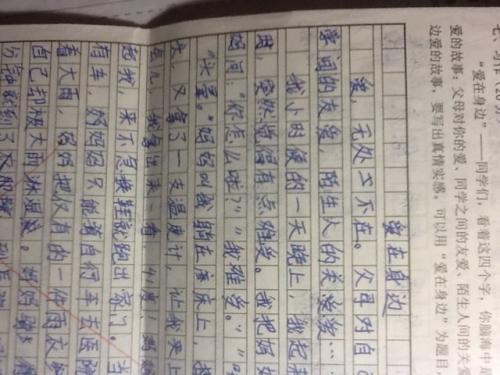 七、习作(26分)
“爱在身边”同学们，看着这四个字，你脑海中是
爱的故事：父母对你的爱、同学之间的友爱、陌生人间的关爱
边爱的故事，要写出真情实感。可以用“爱在身边”为题目，
爱在身边
爱，无处不在。父母对自
间的友爱，陌生人的关爱……
我小时候的一天晚上，我起来
突然觉得有点难受。我把妈
妈问：“你怎么啦？”“我难受。”
妈妈叫我躺在床上，
头，又拿了一支温度计，让我夹上
点儿，我拿出来一看，度，妈
起我，来不急换鞋就跑出家门。当
有车，妈妈只能骑自行车去医院
着大雨，妈妈把仅有的一件雨衣
自己却被大雨淋湿。妈妈骑
分钟就到了